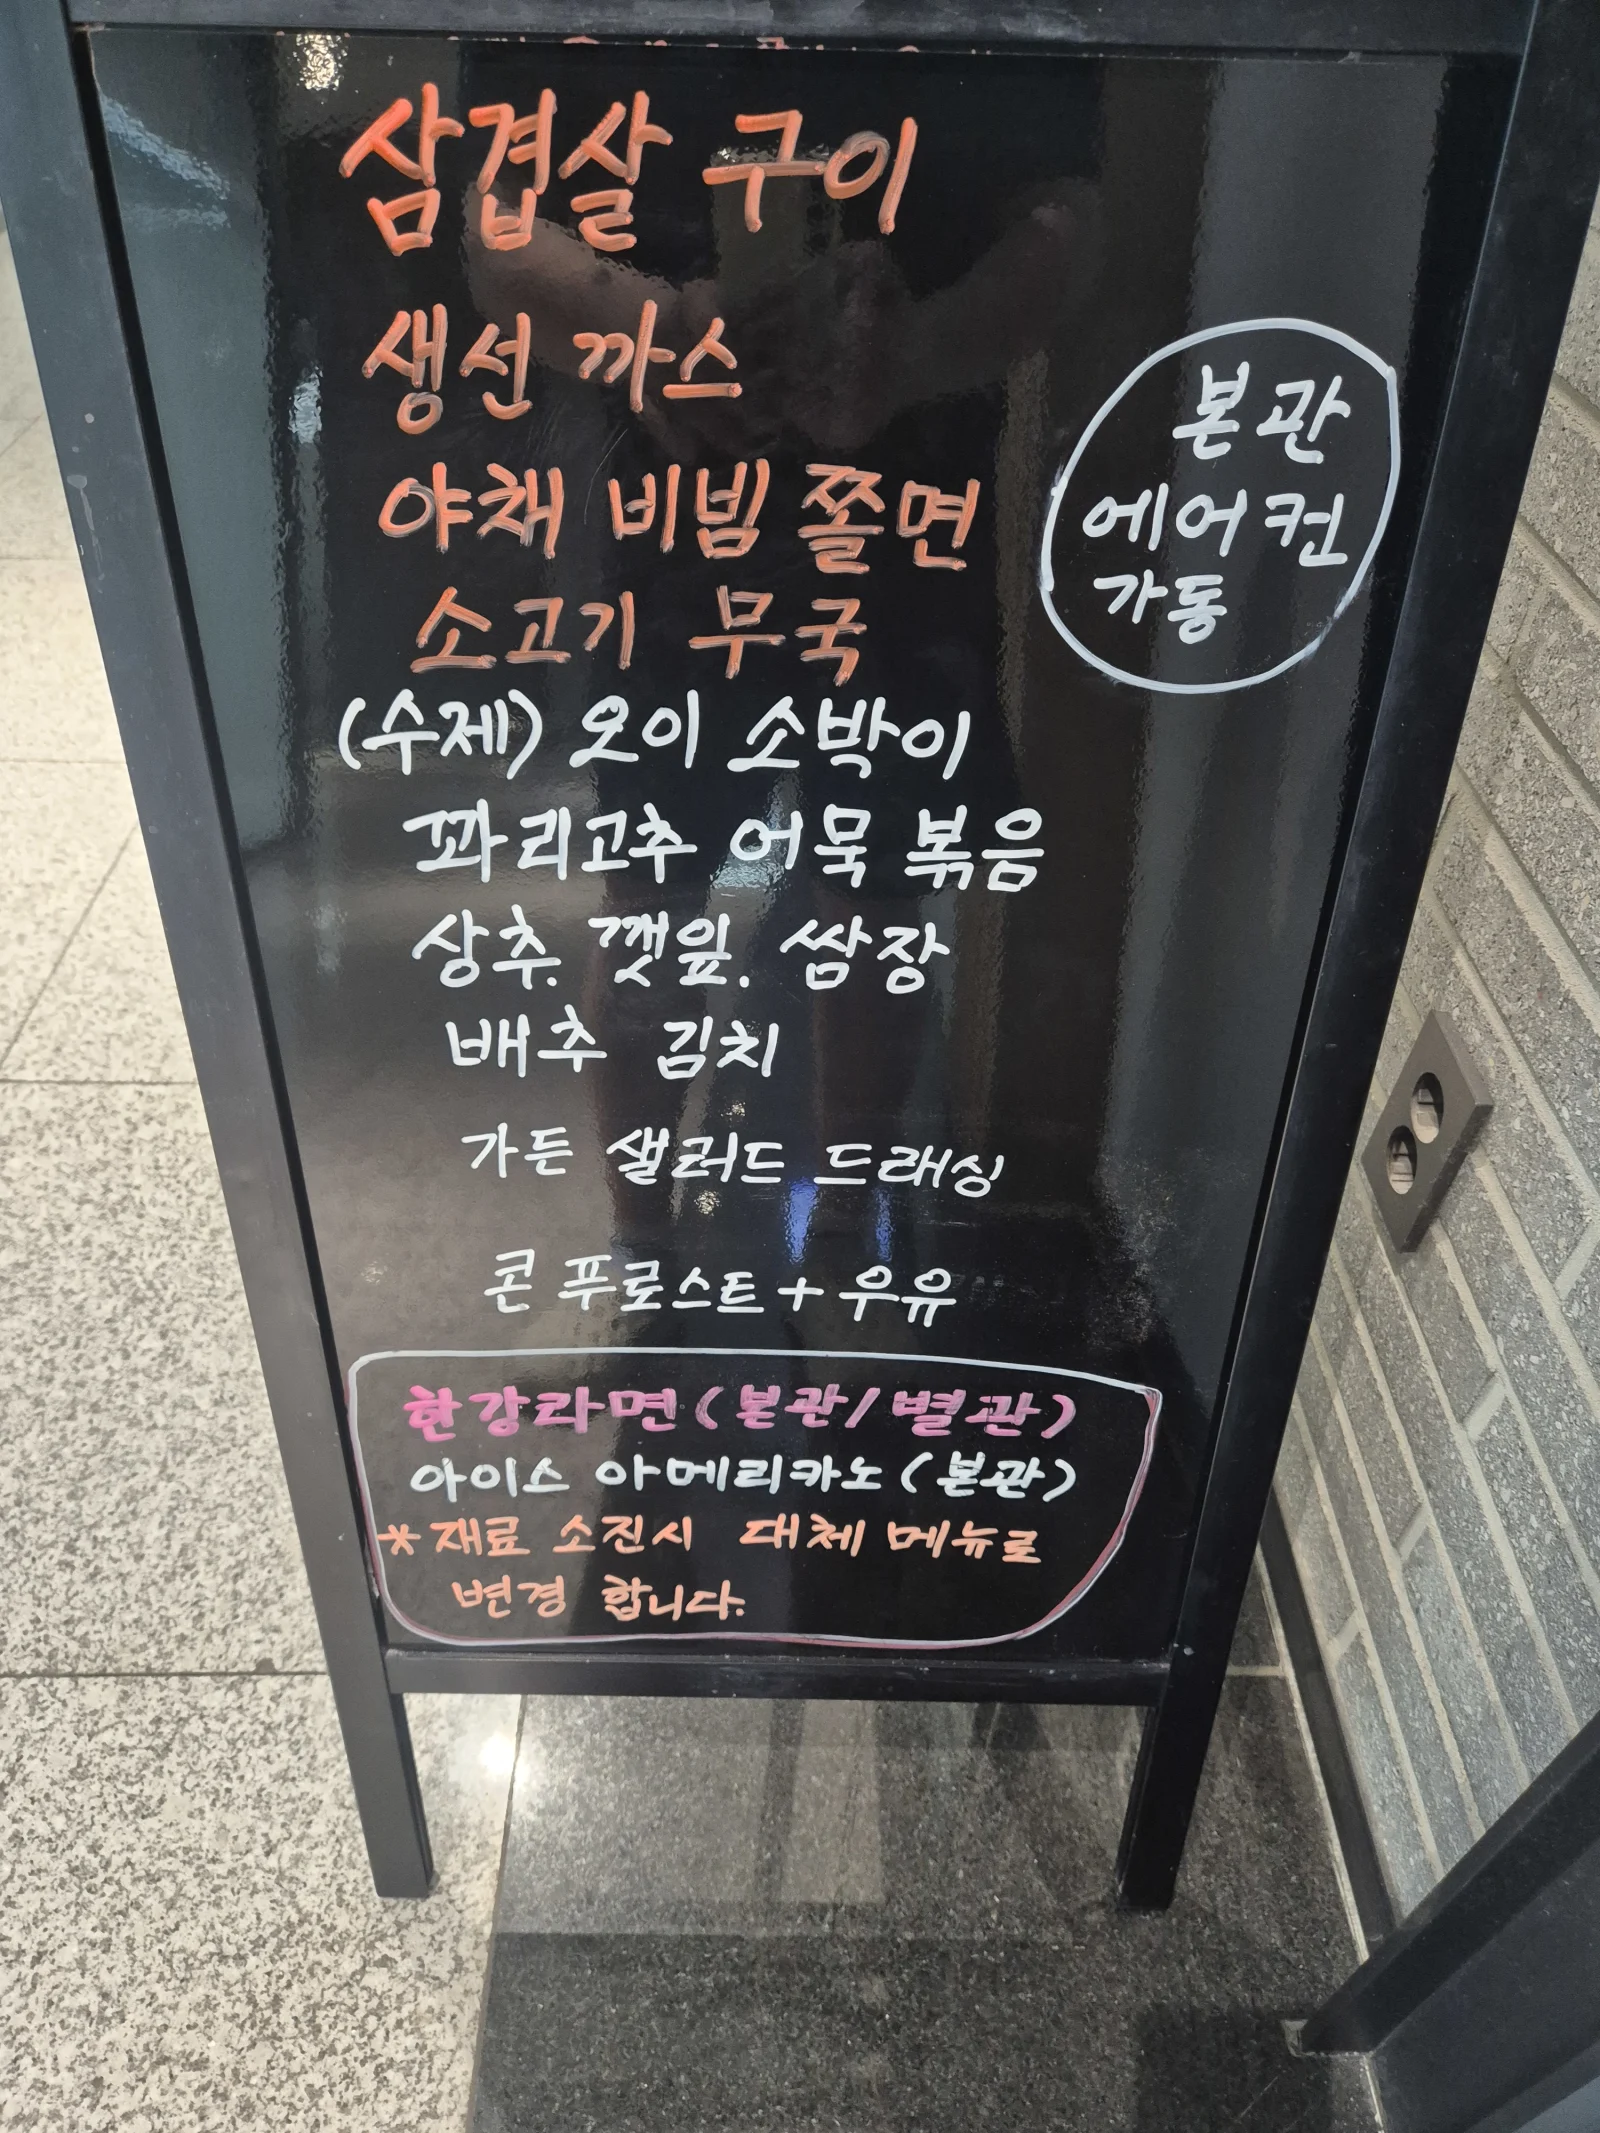 삼겹살 구이
생선 까스
야채 비빔 쫄면
소고기 무국
(수제) 오이 소박이
꽈리고추 어묵 볶음
상추. 깻잎. 쌈장
배추 김치
가든 샐러드 드래싱
콘 푸로스트 + 우유
본관
에어컨
가동
한강라면 (본관/별관)
아이스 아메리카노 (본관)
*재료 소진시 대체 메뉴로
변경 합니다.